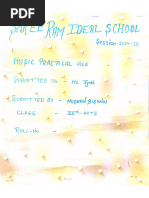 SHREE RAM IDEAL SCHOOL
Session-2024-25
MUSIC PRACTICAL FILE
SUBMITTED TO - Mr. Jyoti
SUBMITTED BY -
CLASS - XIIth - ARTS
ROLL-NO. -